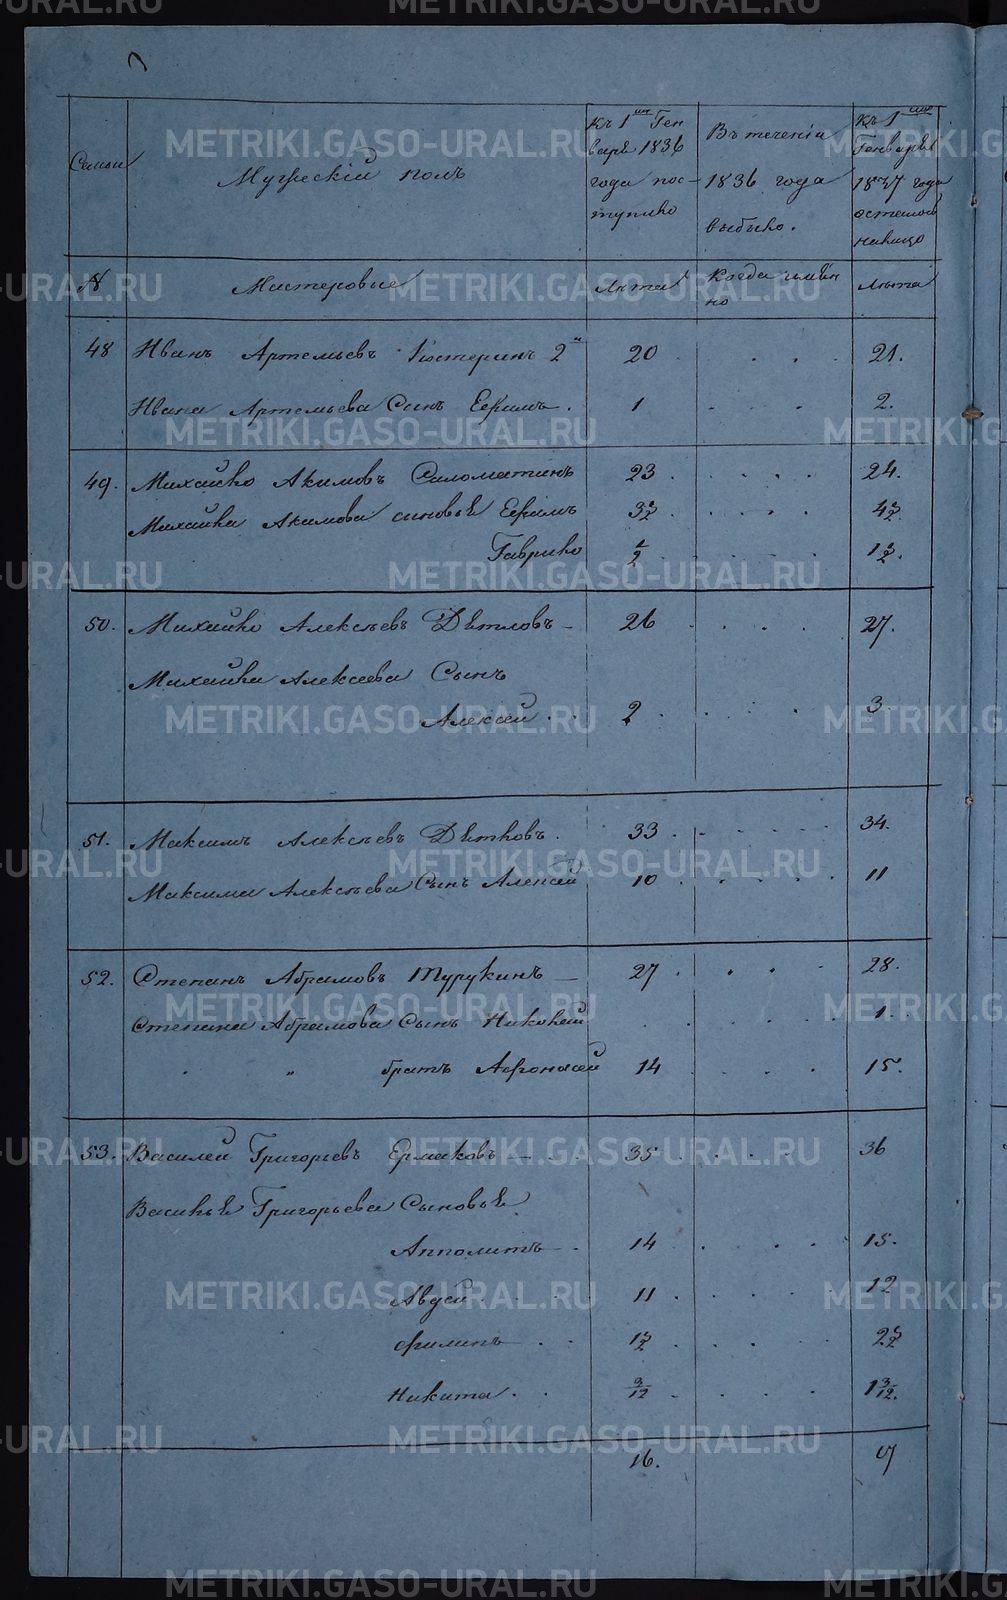 Семьи
Мужескій полъ
Къ 1му Ген
варѣ 1836
года пос-
тупило
Въ теченіи
1836 года
выбыло.
Къ 1му
Генварѣ
1837 года
остылось
налицо
N
Мастеровые
Лѣта
Когда имѣн
но
Лѣта
48 Иванъ Артемьевъ Костеринъ 2й 20 . . . . 21.
Ивана Артемьева Сынъ Ефимъ. 1 . . . . 2.
49. Михайло Акимовъ Саломатинъ 23 . . . . 24.
Михайла Акимова сыновьѣ Ефимъ 3 1/2 . . . . 4 1/2
Гаврило 1/2 . . . . 1 1/2.
50. Михайло Алексѣевъ Дѣтловъ — 26 . . . . 27.
Михайла Алексеева Сынъ
Алексей . . 2 . . . . 3.
51. Максимъ Алексѣевъ Дѣтловъ. 33 . . . . 34.
Максима Алексѣева Сынъ Алексей 10 . . . . 11
52. Степанъ Абрамовъ Турукинъ — 27 . . . . 28.
Степана Абрамова Сынъ Николай . . . . 1.
" братъ Афонасей 14 . . . . 15.
53. Василей Григорьевъ Ермаковъ — 35 . . . . 36
Васильѣ Григорьева Сыновьѣ
Апполитъ . 14 . . . . 15.
Авдей . . . 11 . . . . 12
Филипъ . . 1 1/2 . . . . 2 1/2
Никита . . 3/12 . . . . 1 3/12.
16. 17
METRIKI.GASO-URAL.RU